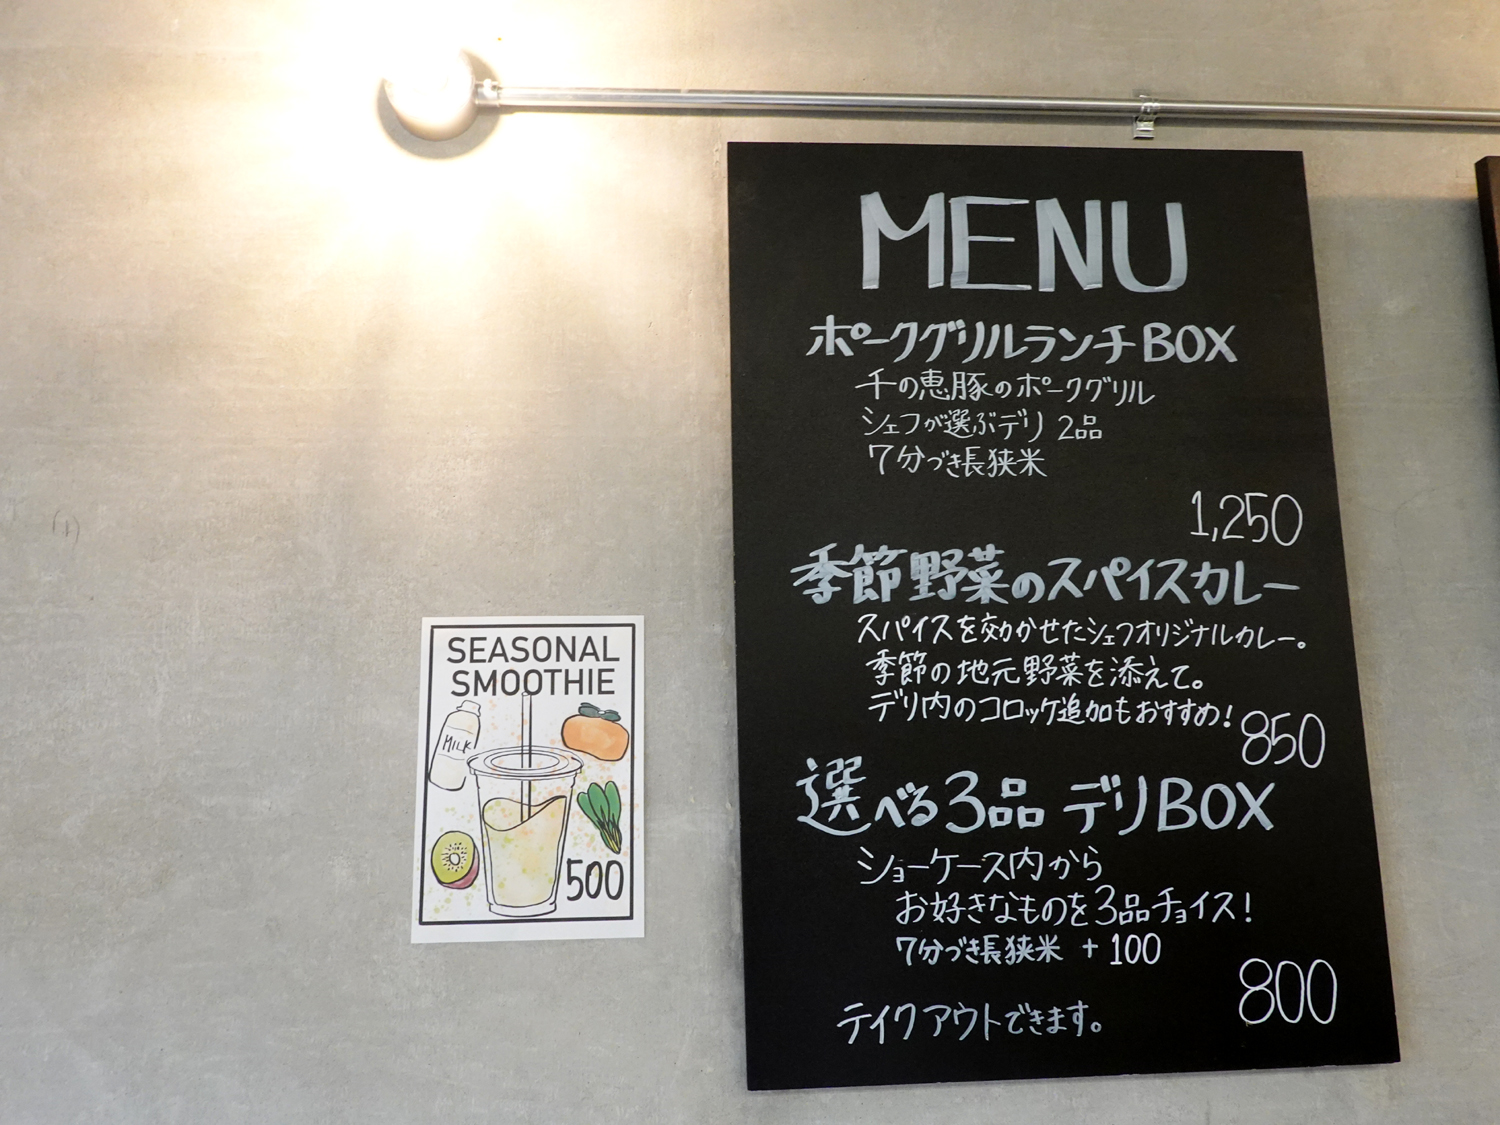 MENU
ポークグリルランチBOX
千の恵豚のポークグリル
シェフが選ぶデリ 2品
7分づき長狭米
1,250
季節野菜のスパイスカレー
スパイスを効かせたシェフオリジナルカレー。
季節の地元野菜を添えて。
デリ内のコロッケ追加もおすすめ!
850
選べる3品 デリBOX
ショーケース内から
お好きなものを3品チョイス!
7分づき長狭米 +100
800
テイクアウトできます。
SEASONAL
SMOOTHIE
MILK
500